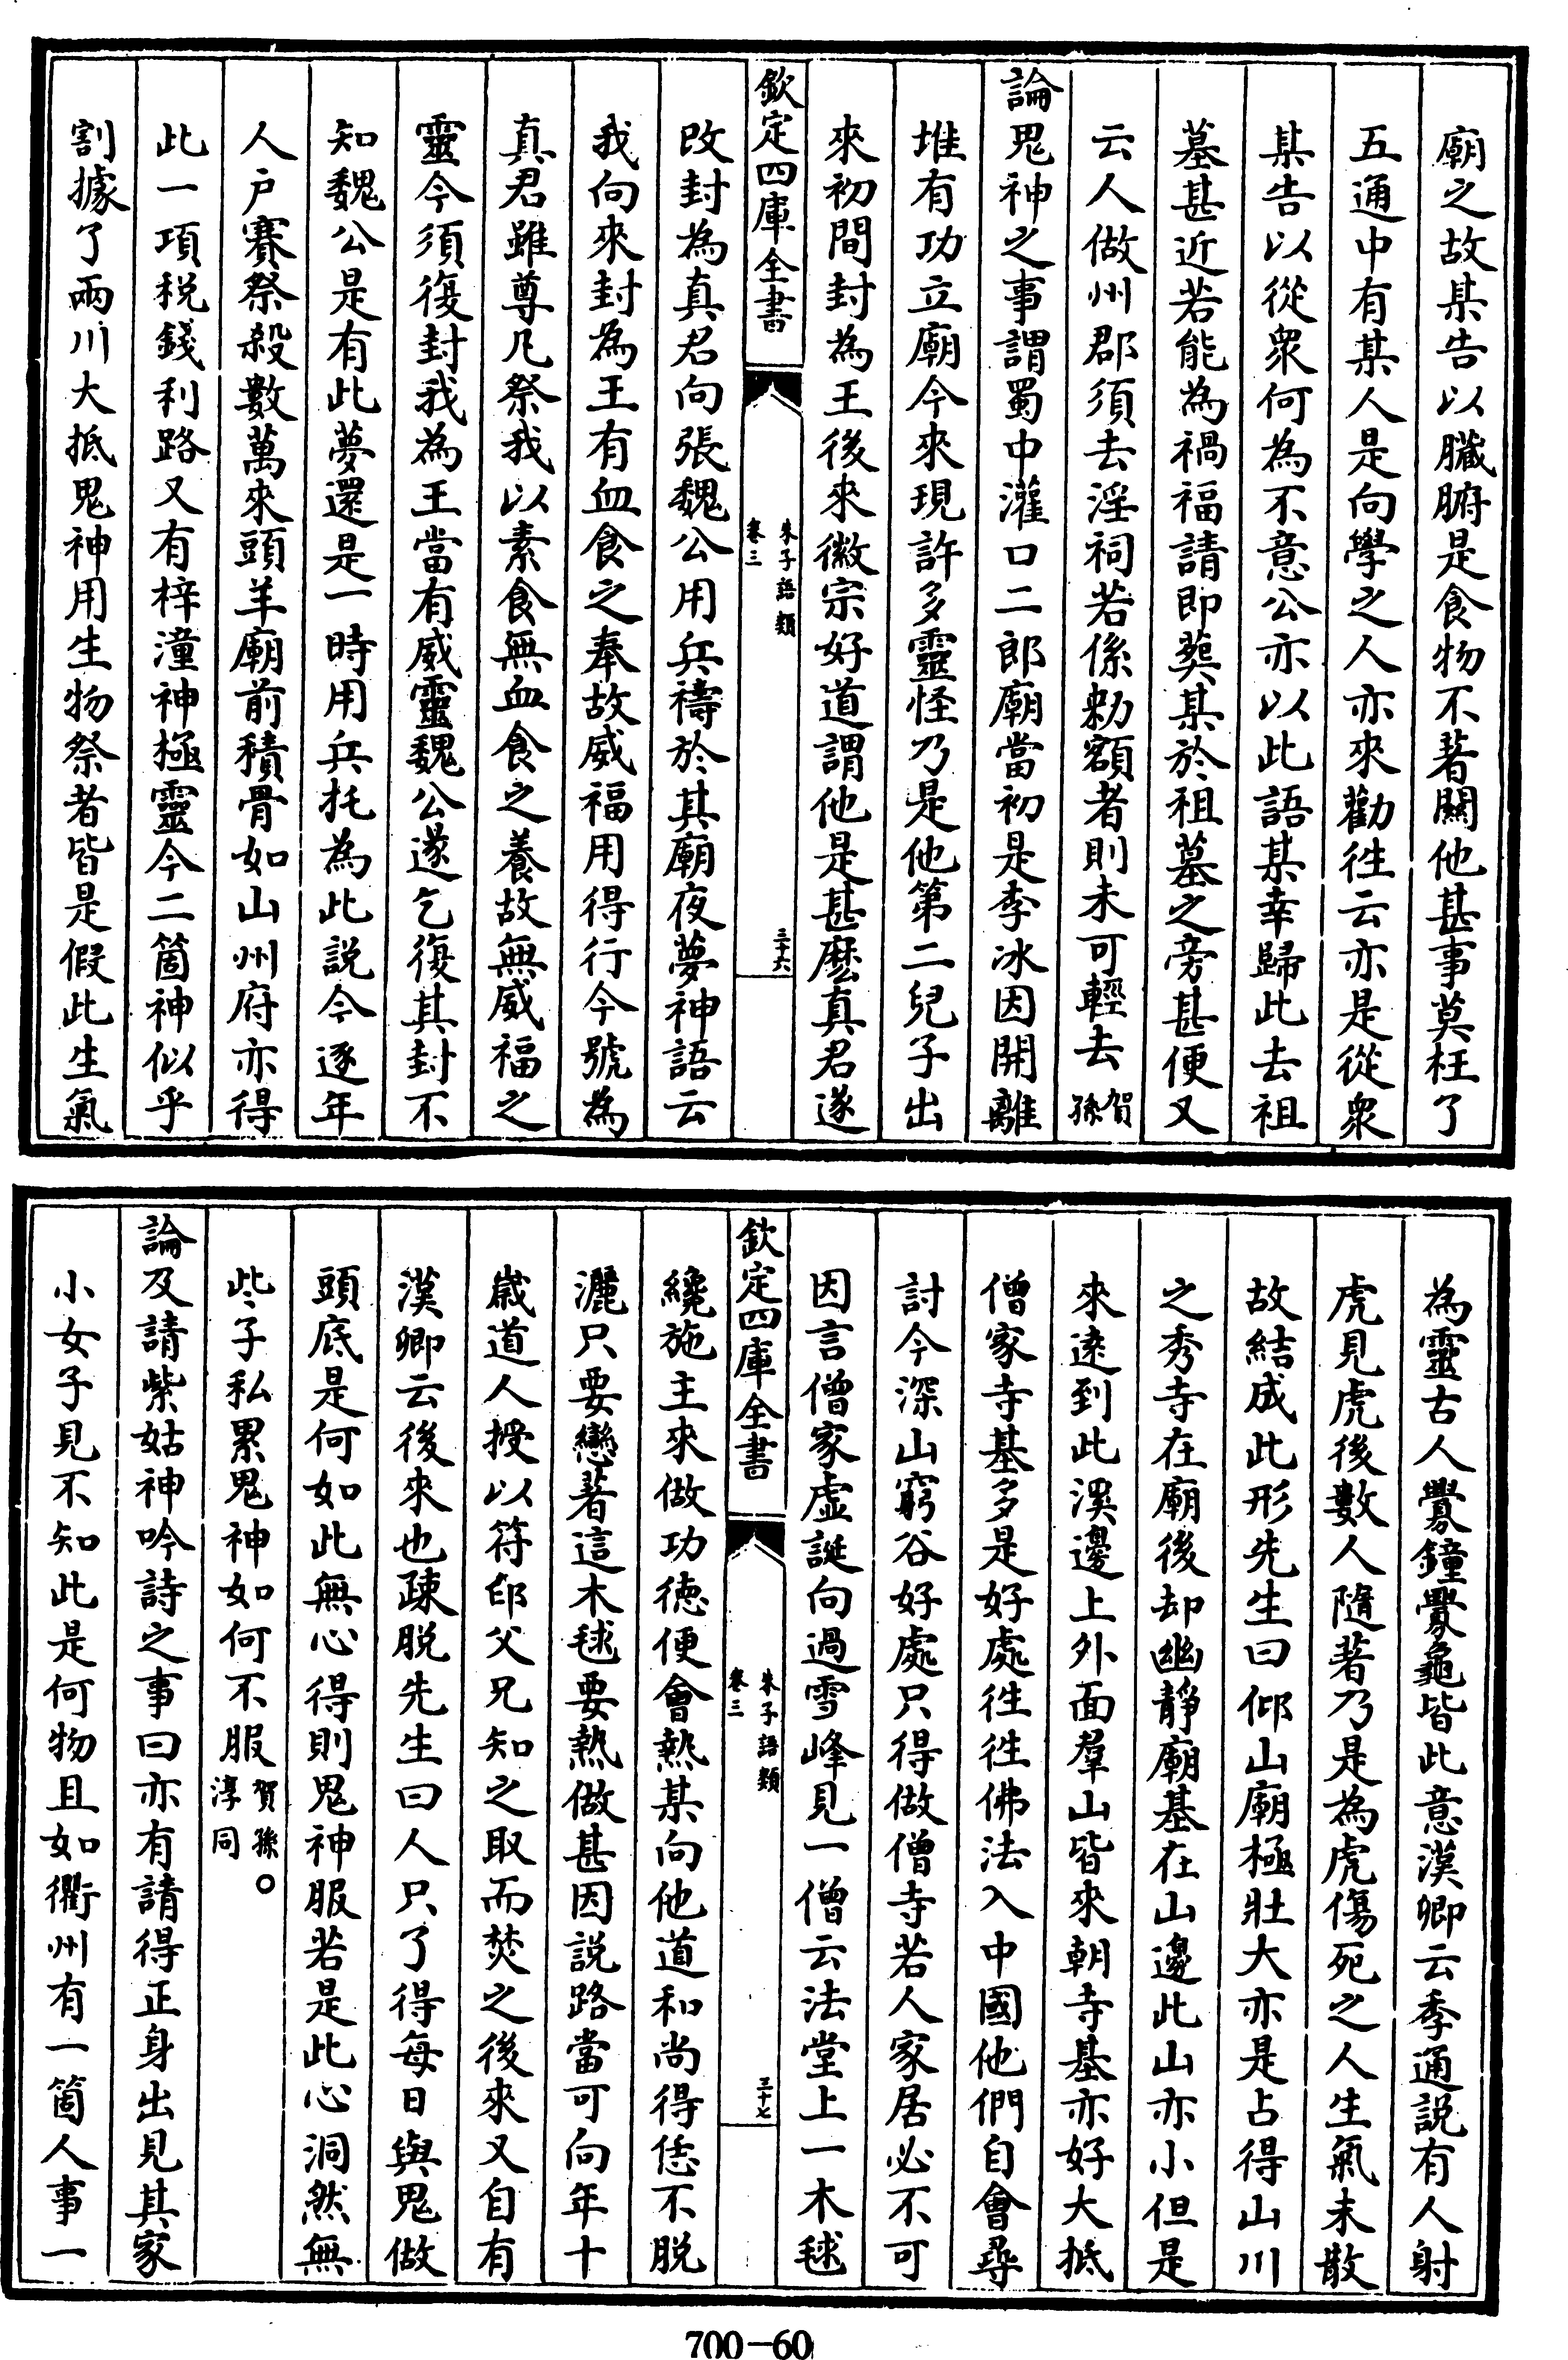 廟之故某告以臟腑是食物不著關他甚事莫枉了
五通中有某人是向學之人亦來勸徃云亦是從衆
某告以從衆何為不意公亦以此語某幸歸此去祖
墓甚近若能為禍福請即葬某於祖墓之旁甚便又
云人做州郡須去淫祠若係勅額者則未可輕去賀孫
論鬼神之事謂蜀中灌口二郎廟當初是李冰因開離
堆有功立廟今來現許多靈怪乃是他第二兒子出
來初間封為王後來徽宗好道謂他是甚麽真君遂
欽定四庫全書
朱子語類
卷三
三十六
改封為真君向張魏公用兵禱於其廟夜夢神語云
我向來封為王有血食之奉故威福用得行今號為
真君雖尊凡祭我以素食無血食之養故無威福之
靈今須復封我為王當有威靈魏公遂乞復其封不
知魏公是有此夢還是一時用兵托為此説今逐年
人户賽祭殺數萬來頭羊廟前積骨如山州府亦得
此一項税錢利路又有梓潼神極靈今二箇神似乎
割據了兩川大抵鬼神用生物祭者皆是假此生氣
為靈古人釁鐘釁龜皆此意漢卿云季通説有人射
虎見虎後數人隨著乃是為虎傷死之人生氣未散
故結成此形先生曰仰山廟極壯大亦是占得山川
之秀寺在廟後却幽靜廟基在山邊此山亦小但是
來遠到此溪邊上外面羣山皆來朝寺基亦好大抵
僧家寺基多是好處徃徃佛法入中國他們自會尋
討今深山窮谷好處只得做僧寺若人家居必不可
因言僧家虛誕向過雪峰見一僧云法堂上一木毬
欽定四庫全書
朱子語類
卷三
三十七
纔施主來做功德便會熱某向他道和尚得恁不脱
灑只要戀著這木毬要熱做甚因説路當可向年十
歲道人授以符印父兄知之取而焚之後來又自有
漢卿云後來也疎脱先生曰人只了得每日與鬼做
頭底是何如此無心得則鬼神服若是此心洞然無
些子私累鬼神如何不服賀孫○淳同
論及請紫姑神吟詩之事曰亦有請得正身出見其家
小女子見不知此是何物且如衢州有一箇人事一
700-60